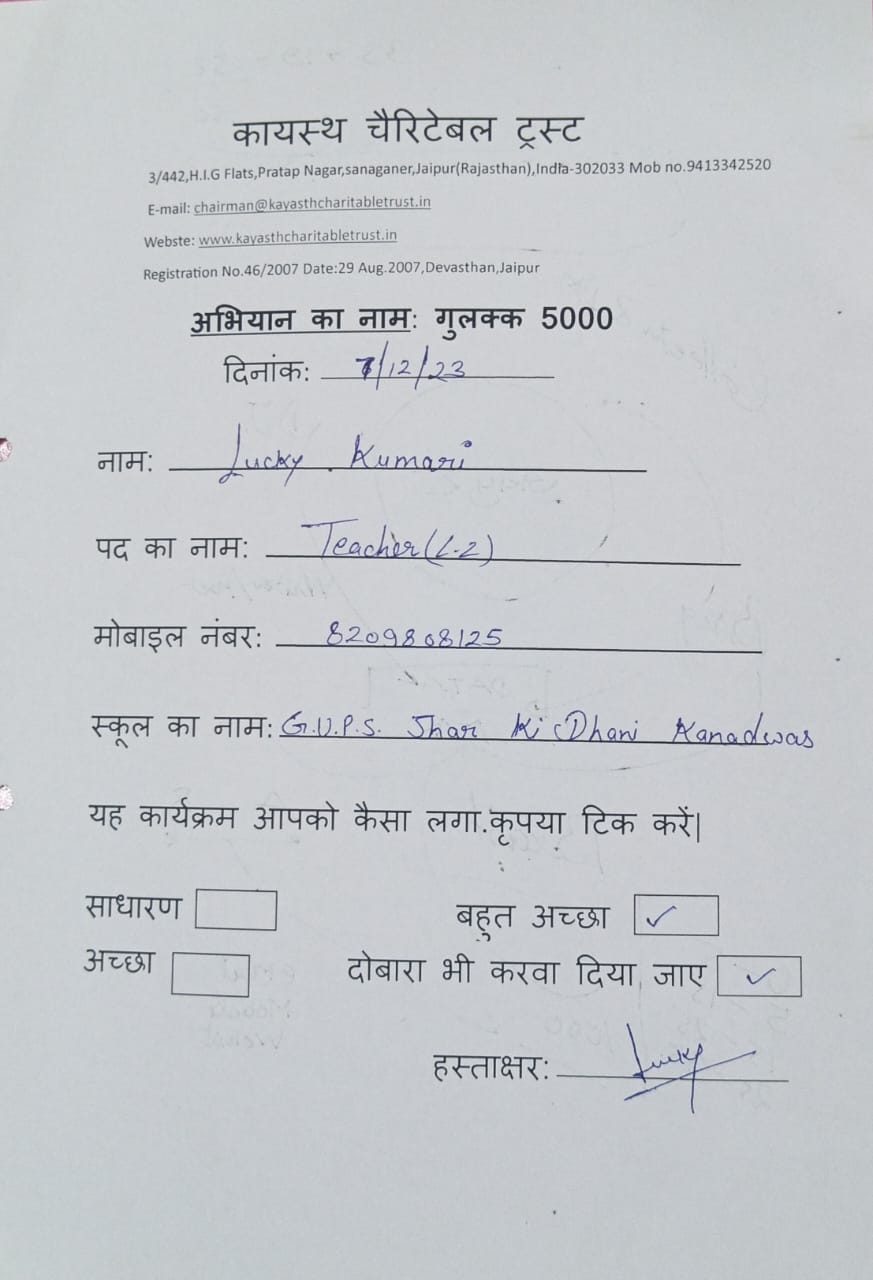 कायस्थ चैरिटेबल ट्रस्ट
3/442,H.I.G Flats,Pratap Nagar,sanaganer,Jaipur(Rajasthan),India-302033 Mob no.9413342520
E-mail: chairman@kayasthcharitabletrust.in
Webste: www.kayasthcharitabletrust.in
Registration No.46/2007 Date:29 Aug.2007,Devasthan,Jaipur
अभियान का नाम: गुलक्क 5000
दिनांक: 7/12/23
नाम: Lucky Kumari
पद का नाम: Teacher (L-2)
मोबाइल नंबर: 8209808125
स्कूल का नाम: G.U.P.S. Jhar Ki Dhani Kanadwas
यह कार्यक्रम आपको कैसा लगा.कृपया टिक करें|
साधारण बहुत अच्छा ✓
अच्छा दोबारा भी करवा दिया जाए ✓
हस्ताक्षर: Lucky